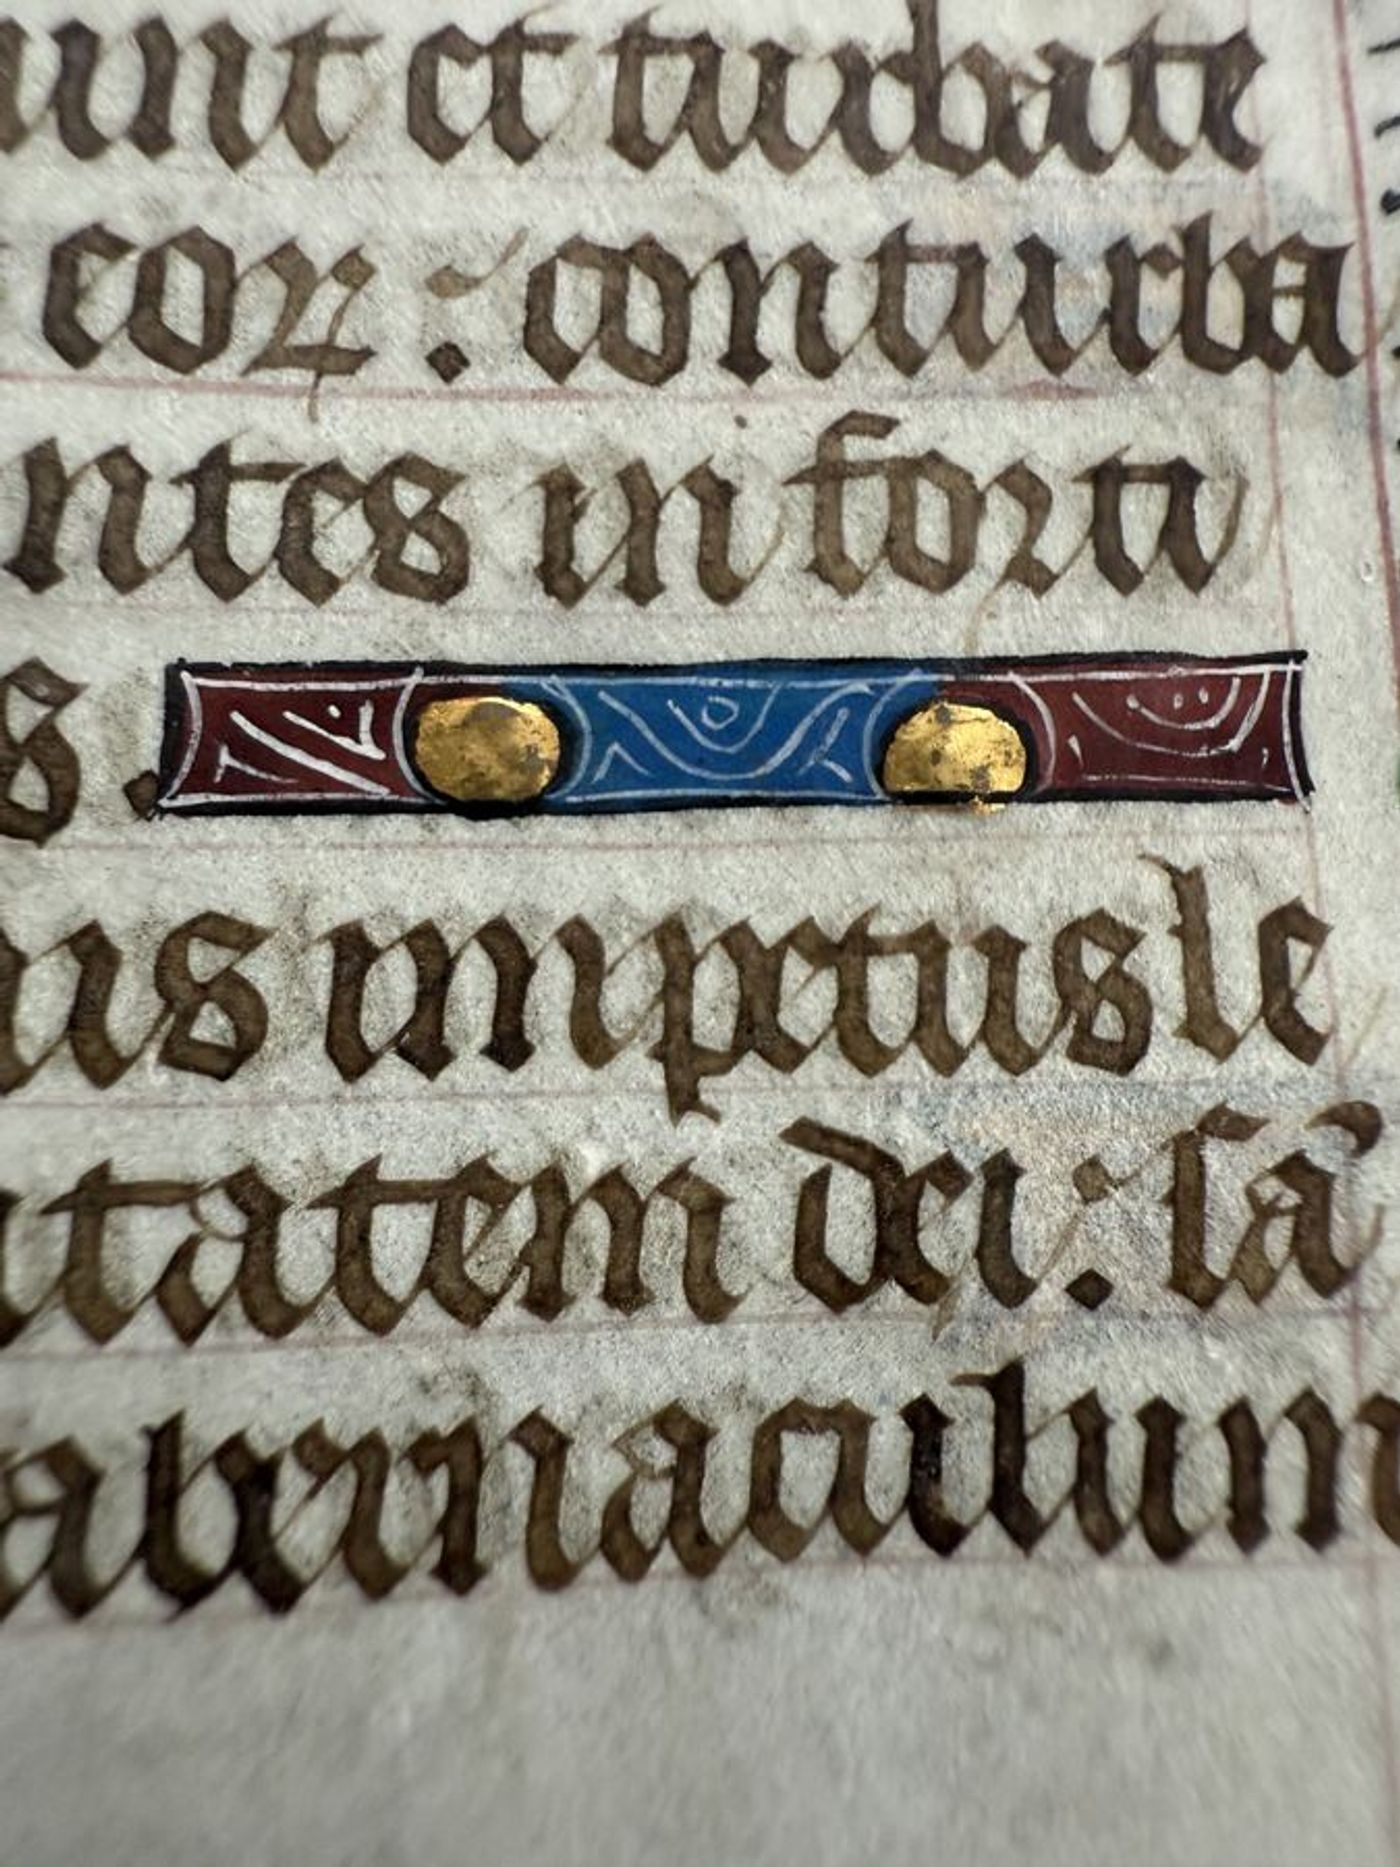 unt et turbate
eoꝝ : conturba
ntes in forti
s .
us impetus le
itatem dei : sā
abernaculum